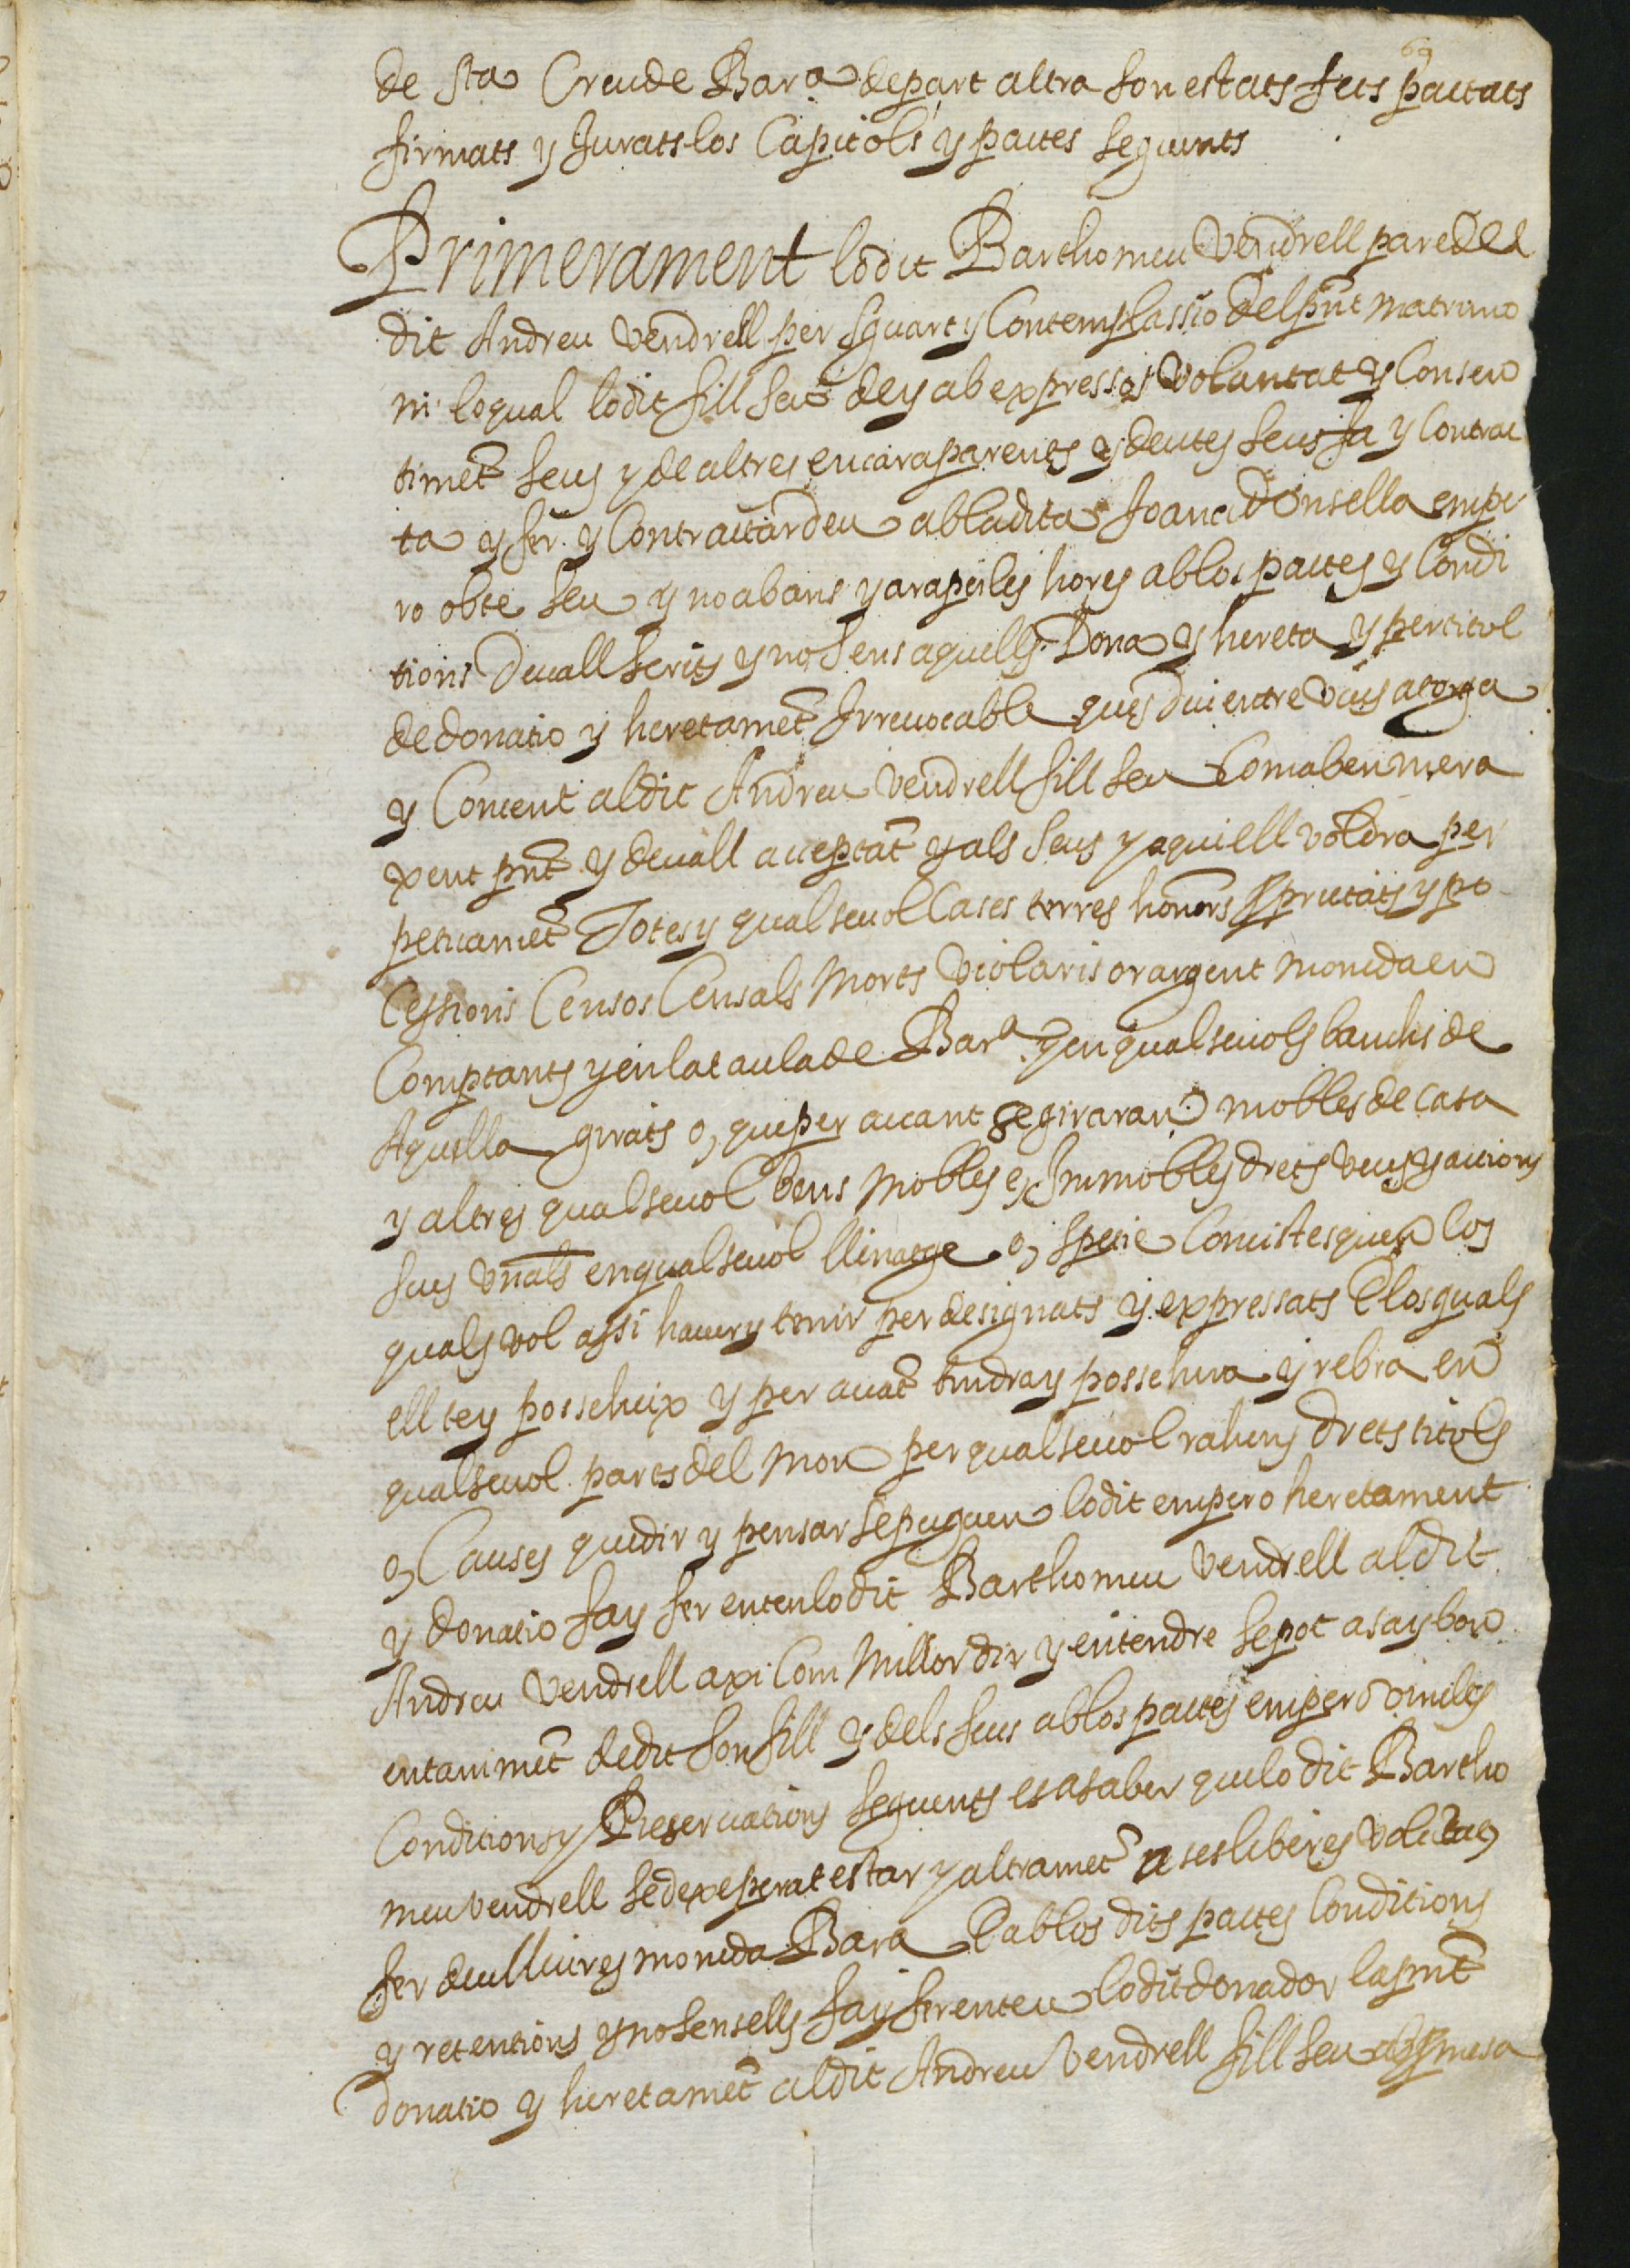 69
de sta Creu de Barª de part altra son estats fets pactats
firmats y Jurats los Capitols y pactes seguents
Primerament lo dit Barthomeu Vendrell pare del
dit Andreu Vendrell per sguart y Contemplassio del pnt matrimo
ni loqual lo dit fill seu de y ab expressa voluntat y Consen
timet seus y de altres encara parents y deutes seus fa y Contrac
ta y fer y Contractar deu ab la dita Joana Donsella empe
ro obte seu y no abans y ara per les hores ab los pactes y Condi
tions devall scrits y no sens aquells. Dona y hereta y per titol
de donatio y heretamet Irrevocable ques diu entre vius atorga
y Concent al dit Andreu Vendrell fill seu Com a benmera
xent pnt y devall acceptat y als seus y a qui ell voldra per
petuamet Totes y qualsevol Cases terres honors proprietats y po
cessions Censos Censals Morts Violaris or argent moneda en
Comptants y en la taula de Barª y en qualsevols banchs de
Aquella girats o, que per avant se giraran mobles de casa
y altres qualsevol bens Mobles e, Immobles drets veus y actions
sues vnals en qualsevol llinatge o, spetie Consistesquen los
quals vol assi haver y tenir per designats y expressats E los quals
ell te y posseheix y per avat tindra y possehira y rebra en
qualsevol parts del Mon per qualsevol rahons drets titols
o, Causes que dir y pensar se puguen lo dit empero heretament
y donatio fa y fer enten lo dit Barthomeu Vendrell al dit
Andreu Vendrell axi Com Millor dir y entendre se pot a sa y bon
entanimet de dit son fill y dels seus ab los pactes empero vincles
Conditions y Reservations seguents es a saber que lo dit Bartho
meu Vendrell se dexe per a testar y altramet a ses liberes volutats
fer deu lliures moneda Bara E ab los dits pactes Conditions
y retentions y no sens ells fa y fer enten lo dit donador la pnt
donatio y heretamet al dit Andreu Vendrell fill seu ab promesa